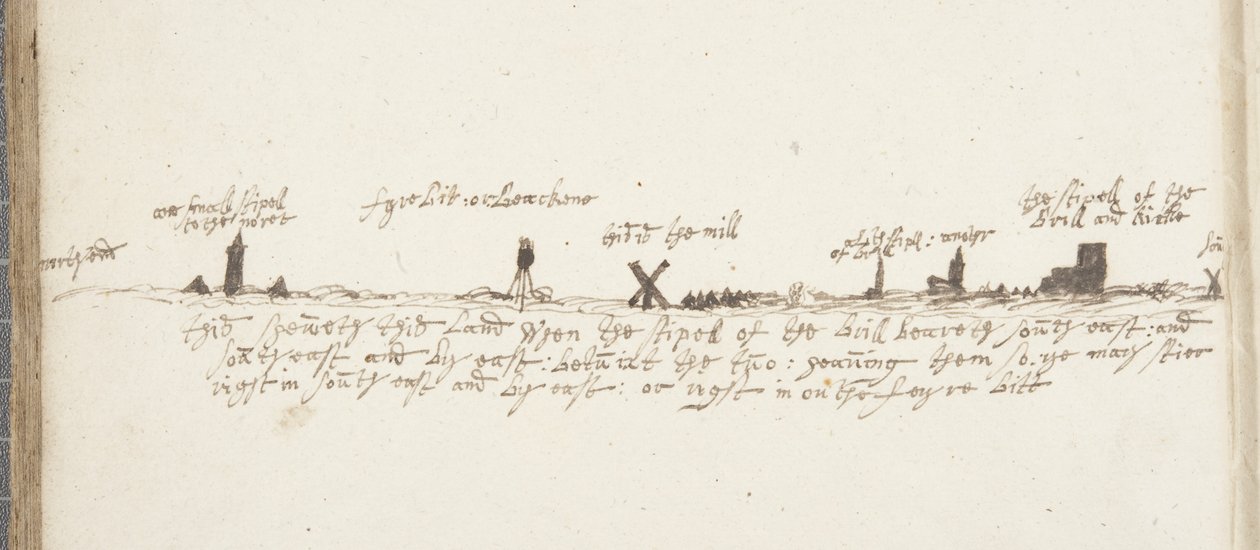 one small stipel
to the noret
fyre bit : or beackene
this is the mill
the stipell of the
brill and kirke
of brill stipll : anothr
north end
sou
this sheweth this land when the stipel of the brill beareth south east : and
south east and by east : betwixt the two : heaving them so. ye may stier
right in south east and by east : or right in on the feyre bitt